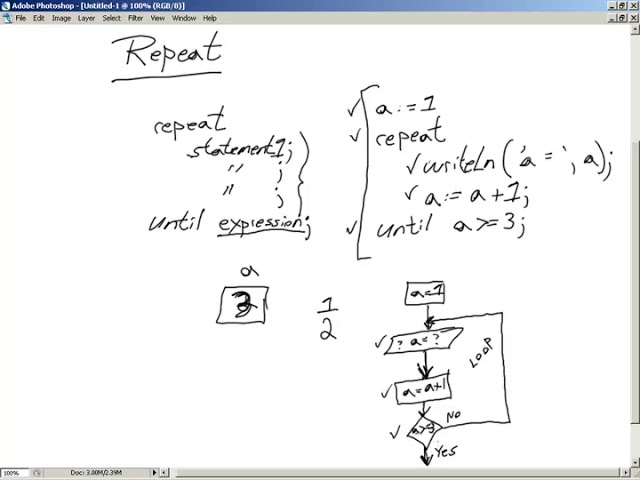 Adobe Photoshop - [Untitled-1 @ 100% (RGB/8)]
File Edit Image Layer Select Filter View Window Help
Repeat
repeat
statement1;
" ;
" ;
until expression;
a := 1
repeat
writeLn('a = ', a);
a := a + 1;
until a >= 3;
a
3
1
2
a=1
? a = ?
a = a+1
NO
Yes
LOOP
100% Doc: 3.00M/2.39M